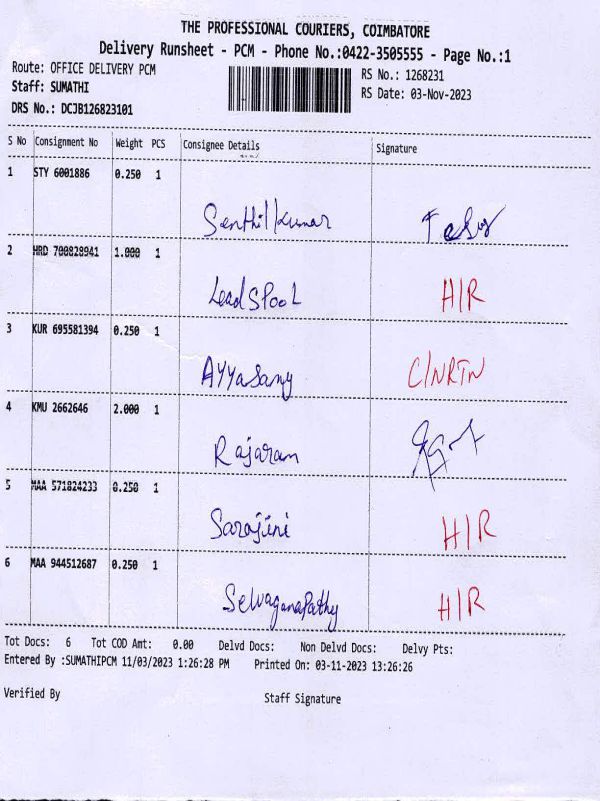 THE PROFESSIONAL COURIERS, COIMBATORE
Delivery Runsheet - PCM - Phone No.:0422-3505555 - Page No.:1
Route: OFFICE DELIVERY PCM RS No.: 1268231
Staff: SUMATHI RS Date: 03-Nov-2023
DRS No.: DCJB126823101
S No Consignment No Weight PCS Consignee Details Signature
1 STY 6001886 0.250 1
Senthil kumar
2 HRD 700829941 1.000 1
Lead Spool H/R
3 KUR 695581394 0.250 1
Ayyasamy C/NRTN
4 KMU 2662646 2.000 1
Rajaram
5 MAA 571824233 0.250 1
Sarojini H/R
6 MAA 944512687 0.250 1
Selvaganapathy H/R
Tot Docs: 6 Tot COD Amt: 0.00 Delvd Docs: Non Delvd Docs: Delvy Pts:
Entered By :SUMATHIPCM 11/03/2023 1:26:28 PM Printed On: 03-11-2023 13:26:26
Verified By Staff Signature